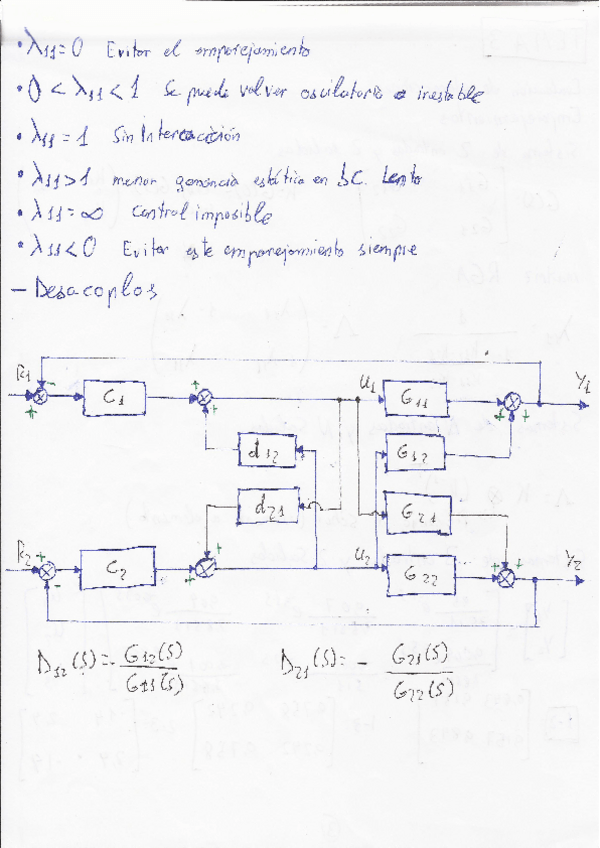 • λ11 = 0 Evitar el emparejamiento
• 0 < λ11 < 1 Se puede volver oscilatorio o inestable
• λ11 = 1 Sin Interacción
• λ11 > 1 menor ganancia estática en BC. Lento
• λ11 = ∞ Control imposible
• λ11 < 0 Evitar este emparejamiento siempre
– Desacoplos
R1 + - C1 + + U1 G11 + + Y1
d12 G12
d21 G21
R2 + - C2 + + U2 G22 + + Y2
D12(s) = - G12(s) / G11(s) D21(s) = - G21(s) / G22(s)